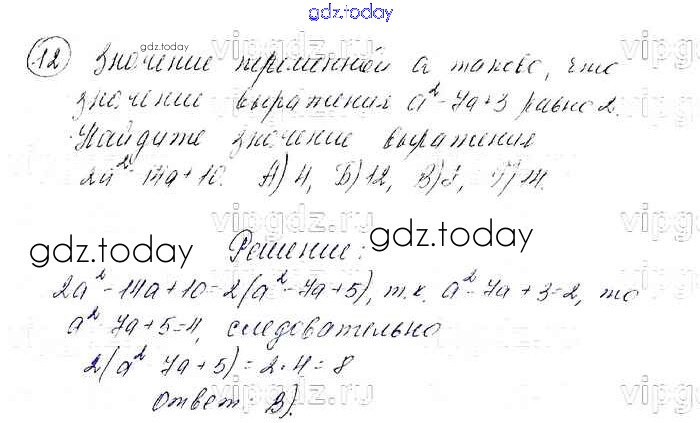 gdz.today
12 Значение переменной a таково, что
значение выражения a² - 7a + 3 равно 2.
Найдите значение выражения
2a² - 14a + 10. А) 4, Б) 12, В) 8, Г) 14.
Решение:
2a² - 14a + 10 = 2(a² - 7a + 5), т.к. a² - 7a + 3 = 2, то
a² 7a + 5 = 4, следовательно
2(a² 7a + 5) = 2 · 4 = 8
Ответ В).